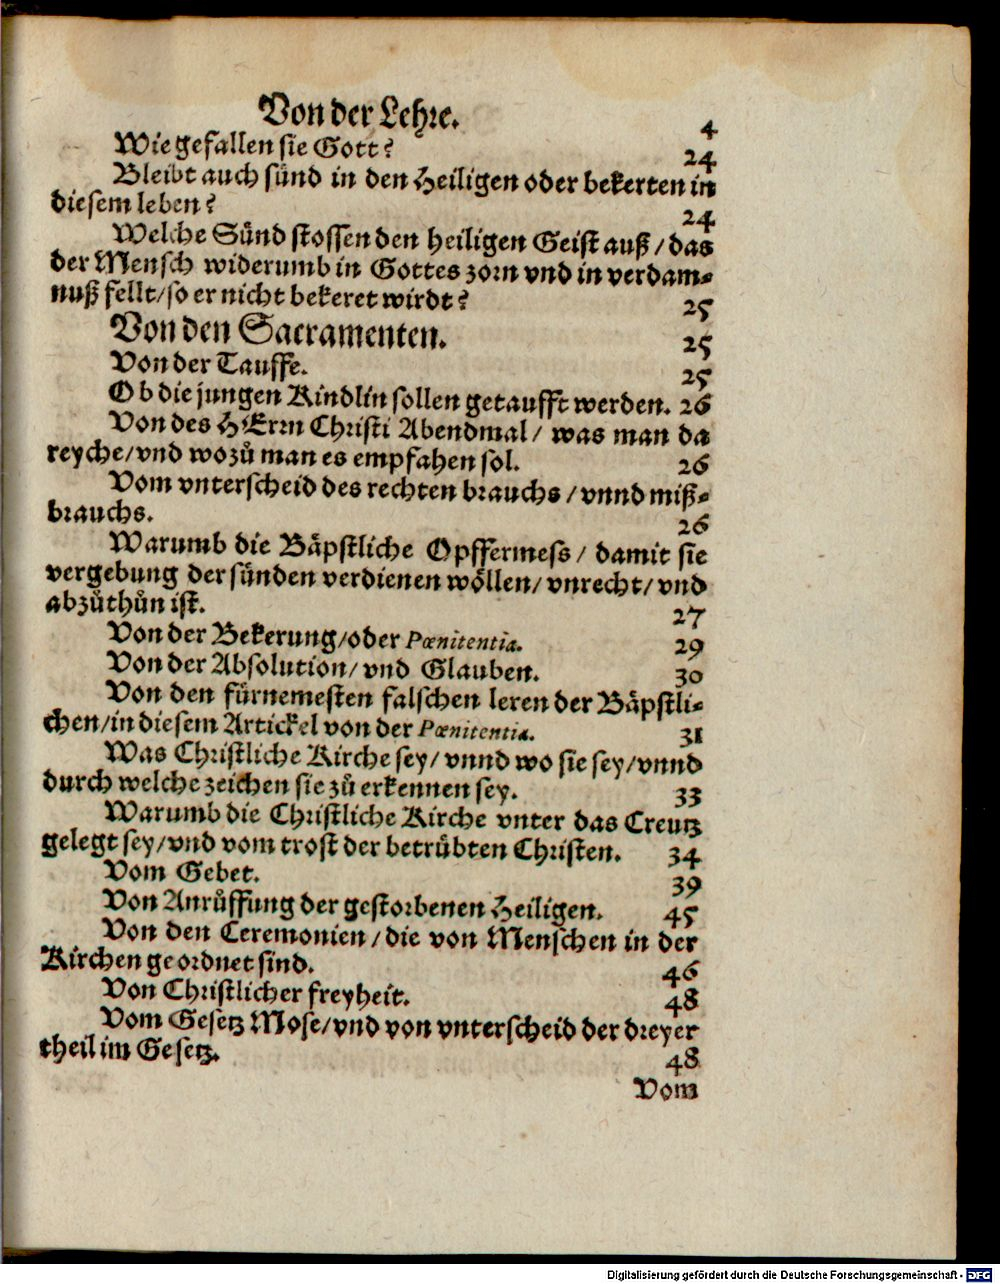 Von der Lehre. 4
Wie gefallen sie Gott? 24
Bleibt auch sünd in den Heiligen oder bekerten in
diesem leben? 24
Welche Sünd stossen den heiligen Geist auß / das
der Mensch widerumb in Gottes zorn vnd in verdam-
nuß fellt/so er nicht bekeret wirdt? 25
Von den Sacramenten. 25
Von der Tauffe. 25
Ob die jungen Kindlin sollen getaufft werden. 26
Von des HErrn Christi Abendmal / was man da
reyche/vnd wozů man es empfahen sol. 26
Vom vnterscheid des rechten brauchs / vnnd miß-
brauchs. 26
Warumb die Bäpstliche Opffermess / damit sie
vergebung der sünden verdienen wöllen/ vnrecht/ vnd
abzůthůn ist. 27
Von der Bekerung/oder Pœnitentia. 29
Von der Absolution/ vnd Glauben. 30
Von den fürnemesten falschen leren der Bäpstli-
chen/in diesem Artickel von der Pœnitentia. 31
Was Christliche Kirche sey/ vnnd wo sie sey/vnnd
durch welche zeichen sie zů erkennen sey. 33
Warumb die Christliche Kirche vnter das Creutz
gelegt sey/vnd vom trost der betrübten Christen. 34
Vom Gebet. 39
Von Anrůffung der gestorbenen Heiligen. 45
Von den Ceremonien / die von Menschen in der
Kirchen geordnet sind. 46
Von Christlicher freyheit. 48
Vom Gesetz Mose/vnd von vnterscheid der dreyer
theil im Gesetz. 48
Vom
Digitalisierung gefördert durch die Deutsche Forschungsgemeinschaft - DFG